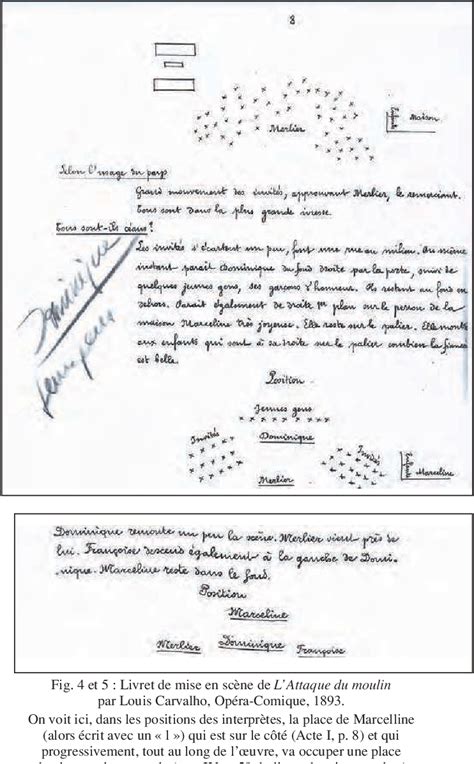 8
Merlier
Maison
Selon l'usage du pays
Grand mouvement des invités, approuvant Merlier, le remerciant.
Tous sont dans la plus grande ivresse.
Tous sont-ils céans?
Les invités s'écartent un peu, font une rue au milieu. Au même
instant parait Dominique du fond droite par la porte, suivi de
quelques jeunes gens, ses garçons d'honneur. Ils restent au fond en
dehors. Parait également de droite 1er plan sur le perron de la
maison Marceline très joyeuse. Elle reste sur le palier. Elle montre
aux enfants qui sont à sa droite sur le palier combien la fiancée
est belle.
Dominique
jeunes gens
Position
Jeunes gens
Invités
Dominique
Invités
Enfants
Marceline
Merlier
Dominique remonte un peu la scène. Merlier vient près de
lui. Françoise descend également à la gauche de Domi-
nique. Marceline reste dans le fond.
Position
Marceline
Merlier Dominique Françoise
Fig. 4 et 5 : Livret de mise en scène de L'Attaque du moulin
par Louis Carvalho, Opéra-Comique, 1893.
On voit ici, dans les positions des interprètes, la place de Marcelline
(alors écrit avec un « l ») qui est sur le côté (Acte I, p. 8) et qui
progressivement, tout au long de l'œuvre, va occuper une place